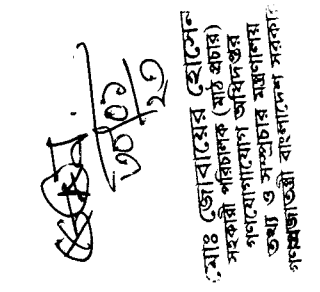 ৩০/০১/২৩
মোঃ জোবায়ের হোসেন
সহকারী পরিচালক (মাঠ প্রচার)
গণযোগাযোগ অধিদপ্তর
তথ্য ও সম্প্রচার মন্ত্রণালয়
গণপ্রজাতন্ত্রী বাংলাদেশ সরকার